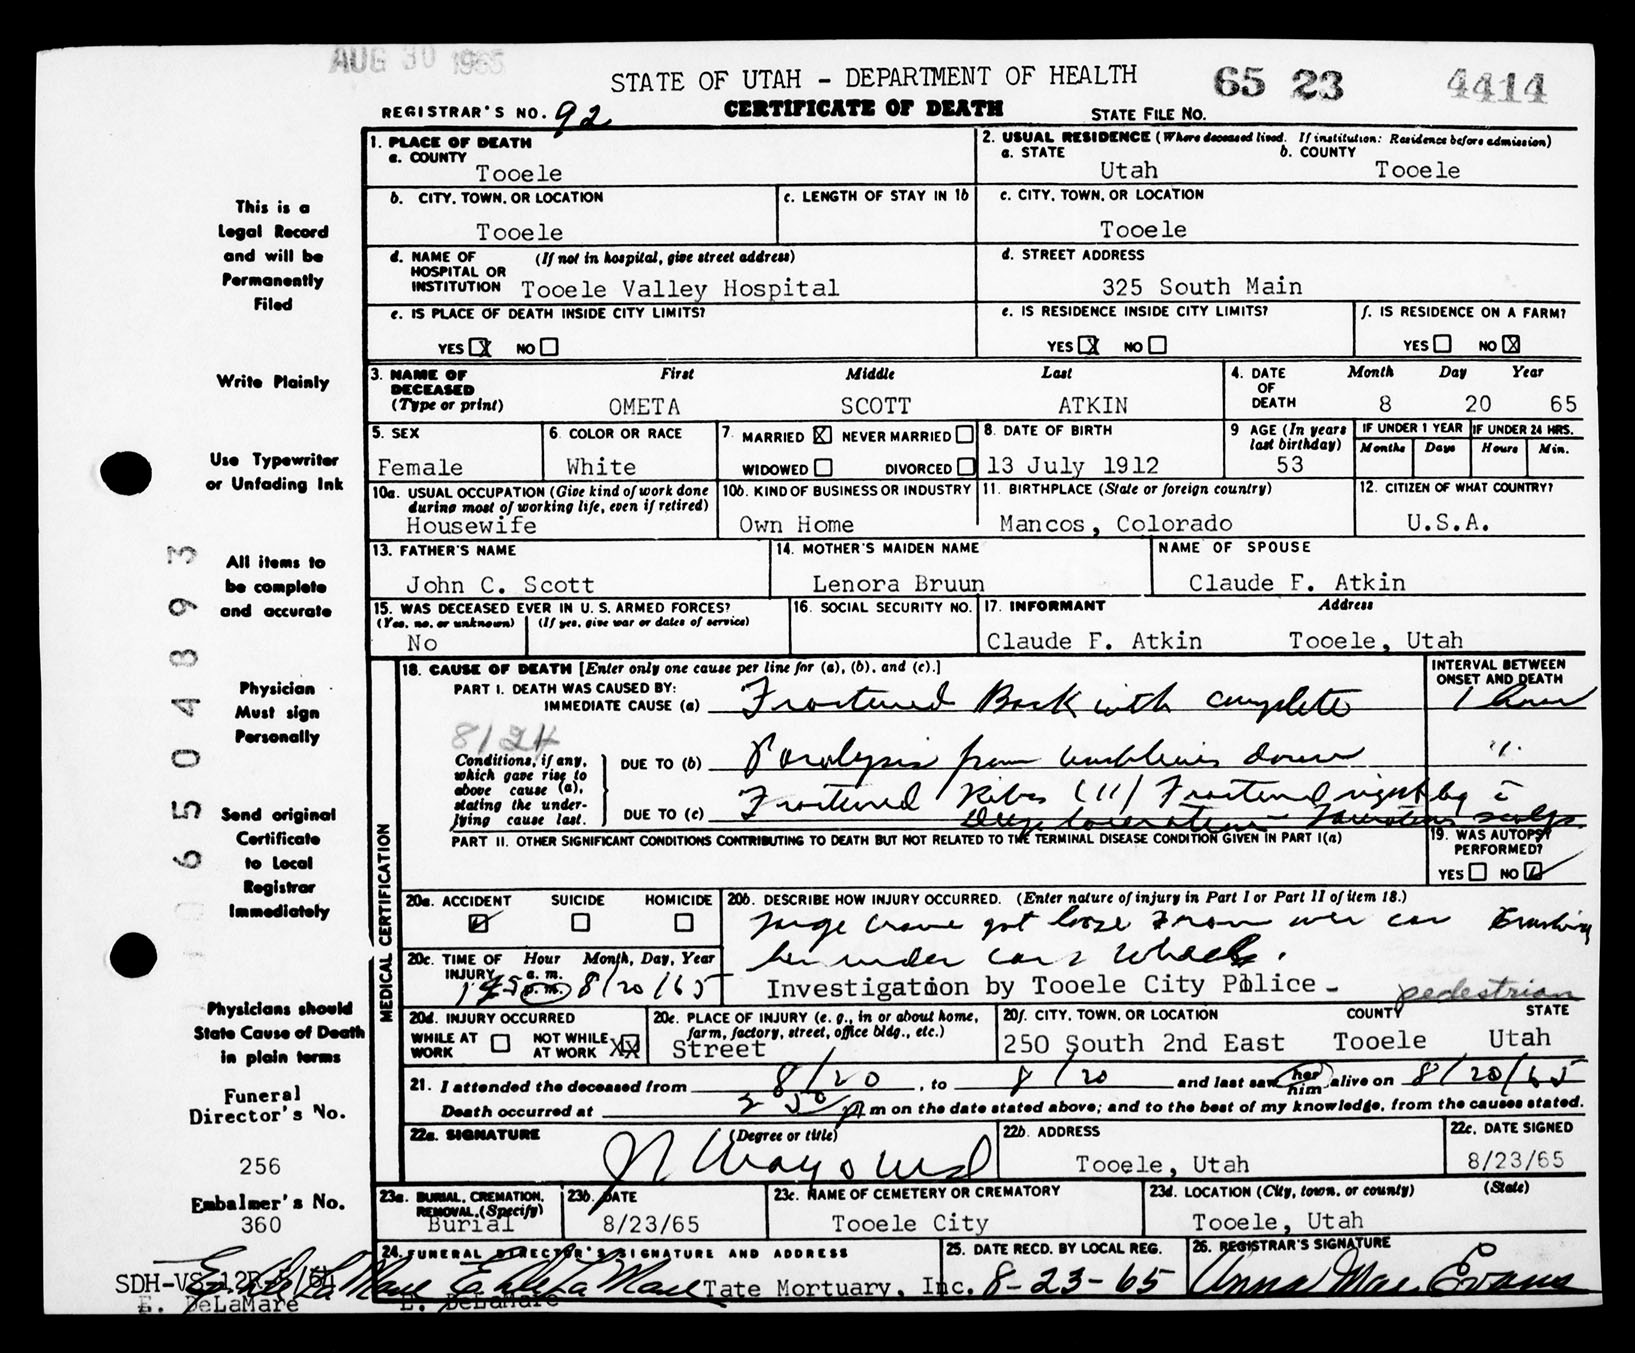 AUG 30 1965
STATE OF UTAH - DEPARTMENT OF HEALTH
65 23 4414
REGISTRAR'S NO. 92
CERTIFICATE OF DEATH
STATE FILE NO.
1. PLACE OF DEATH
a. COUNTY
Tooele
2. USUAL RESIDENCE (Where deceased lived. If institution: Residence before admission)
a. STATE
Utah
b. COUNTY
Tooele
b. CITY, TOWN, OR LOCATION
Tooele
c. LENGTH OF STAY IN 1b
c. CITY, TOWN, OR LOCATION
Tooele
d. NAME OF HOSPITAL OR INSTITUTION
(If not in hospital, give street address)
Tooele Valley Hospital
d. STREET ADDRESS
325 South Main
e. IS PLACE OF DEATH INSIDE CITY LIMITS?
YES X NO
e. IS RESIDENCE INSIDE CITY LIMITS?
YES X NO
f. IS RESIDENCE ON A FARM?
YES NO X
3. NAME OF DECEASED
(Type or print)
First Middle Last
OMETA SCOTT ATKIN
4. DATE OF DEATH
Month Day Year
8 20 65
5. SEX
Female
6. COLOR OR RACE
White
7. MARRIED X NEVER MARRIED
WIDOWED DIVORCED
8. DATE OF BIRTH
13 July 1912
9 AGE (In years last birthday)
53
IF UNDER 1 YEAR
Months Days
IF UNDER 24 HRS.
Hours Min.
10a. USUAL OCCUPATION (Give kind of work done during most of working life, even if retired)
Housewife
10b. KIND OF BUSINESS OR INDUSTRY
Own Home
11. BIRTHPLACE (State or foreign country)
Mancos, Colorado
12. CITIZEN OF WHAT COUNTRY?
U.S.A.
13. FATHER'S NAME
John C. Scott
14. MOTHER'S MAIDEN NAME
Lenora Bruun
NAME OF SPOUSE
Claude F. Atkin
15. WAS DECEASED EVER IN U. S. ARMED FORCES?
(Yes, no, or unknown) (If yes, give war or dates of service)
No
16. SOCIAL SECURITY NO.
17. INFORMANT Address
Claude F. Atkin Tooele, Utah
MEDICAL CERTIFICATION
18. CAUSE OF DEATH [Enter only one cause per line for (a), (b), and (c).]
INTERVAL BETWEEN ONSET AND DEATH
PART I. DEATH WAS CAUSED BY:
IMMEDIATE CAUSE (a) Fractured Back with complete
1 hour
8/24
Conditions, if any, which gave rise to above cause (a), stating the under-lying cause last.
DUE TO (b) Paralysis from umbilicus down
"
DUE TO (c) Fractured Ribs (11) Fractured right leg
Deep laceration
scalp
PART II. OTHER SIGNIFICANT CONDITIONS CONTRIBUTING TO DEATH BUT NOT RELATED TO THE TERMINAL DISEASE CONDITION GIVEN IN PART I(a)
19. WAS AUTOPSY PERFORMED?
YES NO
20a. ACCIDENT SUICIDE HOMICIDE
20b. DESCRIBE HOW INJURY OCCURRED. (Enter nature of injury in Part I or Part II of item 18.)
Large crane got loose from car Crushing
her under car wheels.
Investigation by Tooele City Police - pedestrian
20c. TIME OF INJURY
Hour Month, Day, Year
a. m.
p. m.
8/20/65
20d. INJURY OCCURRED
WHILE AT WORK NOT WHILE AT WORK XX
20e. PLACE OF INJURY (e. g., in or about home, farm, factory, street, office bldg., etc.)
Street
20f. CITY, TOWN, OR LOCATION COUNTY STATE
250 South 2nd East Tooele Utah
21. I attended the deceased from 8/20, to 8/20 and last saw her him alive on 8/20/65
Death occurred at 2 50 p m on the date stated above; and to the best of my knowledge, from the causes stated.
22a. SIGNATURE (Degree or title)
22b. ADDRESS
Tooele, Utah
22c. DATE SIGNED
8/23/65
23a. BURIAL, CREMATION, REMOVAL, (Specify)
Burial
23b. DATE
8/23/65
23c. NAME OF CEMETERY OR CREMATORY
Tooele City
23d. LOCATION (City, town, or county) (State)
Tooele, Utah
24. FUNERAL DIRECTOR'S SIGNATURE AND ADDRESS
E. DeLaMare Tate Mortuary, Inc.
25. DATE RECD. BY LOCAL REG.
8-23-65
26. REGISTRAR'S SIGNATURE
Anna Mae Evans
This is a
Legal Record
and will be
Permanently
Filed
Write Plainly
Use Typewriter
or Unfading Ink
All items to
be complete
and accurate
Physician
Must sign
Personally
Send original
Certificate
to Local
Registrar
Immediately
Physicians should
State Cause of Death
in plain terms
Funeral
Director's No.
256
Embalmer's No.
360
SDH-VS-12R-5/64
E. DeLaMare
06504893